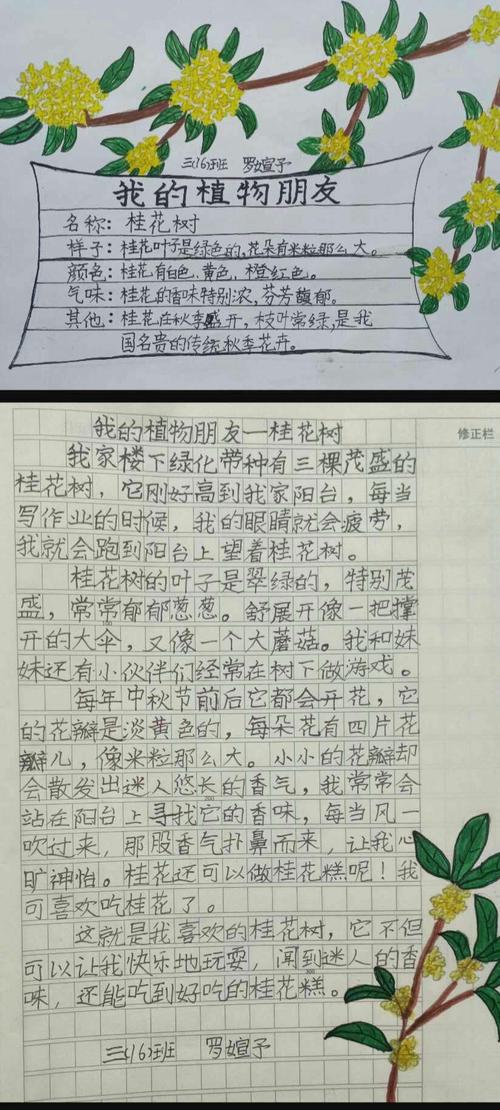 三(16)班 罗媗予
我的植物朋友
名称：桂花树
样子：桂花叶子是绿色的，花朵有米粒那么大。
颜色：桂花有白色、黄色、橙红色。
气味：桂花的香味特别浓，芬芳馥郁。
其他：桂花在秋季盛开，枝叶常绿，是我
国名贵的传统秋季花卉。
修正栏
我的植物朋友一桂花树
我家楼下绿化带种有三棵茂盛的
桂花树，它刚好高到我家阳台，每当
写作业的时候，我的眼睛就会疲劳，
我就会跑到阳台上望着桂花树。
桂花树的叶子是翠绿的，特别茂
盛，常常郁郁葱葱。舒展开像一把撑
开的大伞，又像一个大蘑菇。我和妹
妹还有小伙伴们经常在树下做游戏。
每年中秋节前后它都会开花，它
的花瓣是淡黄色的，每朵花有四片花
瓣儿，像米粒那么大。小小的花瓣却
会散发出迷人悠长的香气，我常常会
站在阳台上寻找它的香味，每当风一
吹过来，那股香气扑鼻而来，让我心
旷神怡。桂花还可以做桂花糕呢！我
可喜欢吃桂花了。
这就是我喜欢的桂花树，它不但
可以让我快乐地玩耍，闻到迷人的香
味，还能吃到好吃的桂花糕。
三(16)班 罗媗予